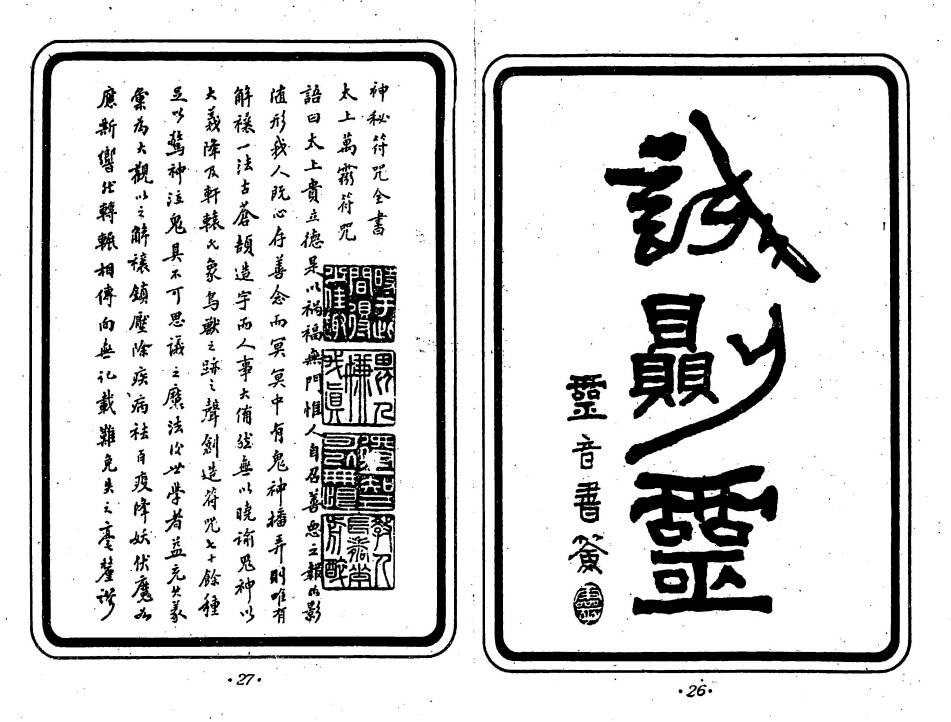 誠則靈
靈音書簽
神秘符咒全書
太上萬靈符咒
語曰太上貴立德是以禍福無門惟人自召善惡之報如影
隨形我人既心存善念而冥冥中有鬼神播弄則唯有
解禳一法古蒼頡造字而人事大備弦無以曉諭鬼神以
大義降及軒轅氏象鳥獸之跡之聲創造符咒七十餘種
足以驚神泣鬼具不可思議之魔法後世學者益充其義
彙為大觀以之解禳鎮壓除疾病祛百疫降妖伏魔如
應斯響然轉輾相傳向無記載難免失之毫釐謬
時于此間得佳趣
畏人嫌我真
·27·
·26·